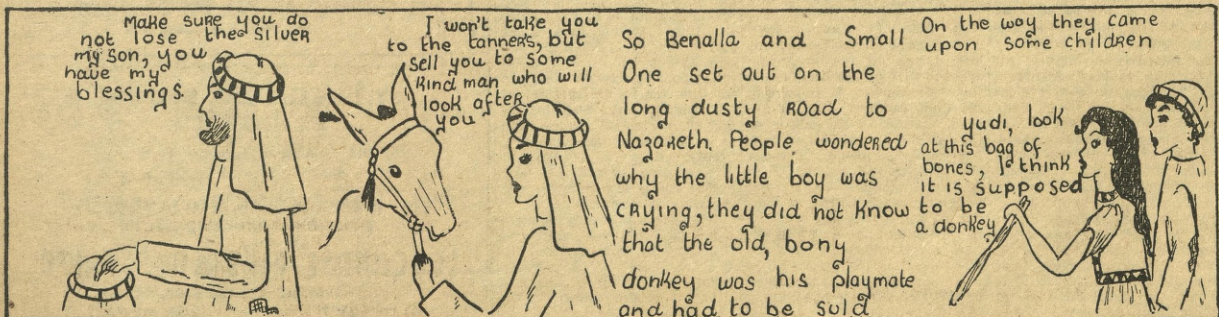 Make sure you do
not lose the silver
my son, you
have my
blessings.
I won't take you
to the tanner's, but
sell you to some
kind man who will
look after
you
So Benalla and Small
One set out on the
long dusty road to
Nazareth. People wondered
why the little boy was
crying, they did not know
that the old, bony
donkey was his playmate
and had to be sold
On the way they came
upon some children
yudi, look
at this bag of
bones, I think
it is supposed
to be
a donkey